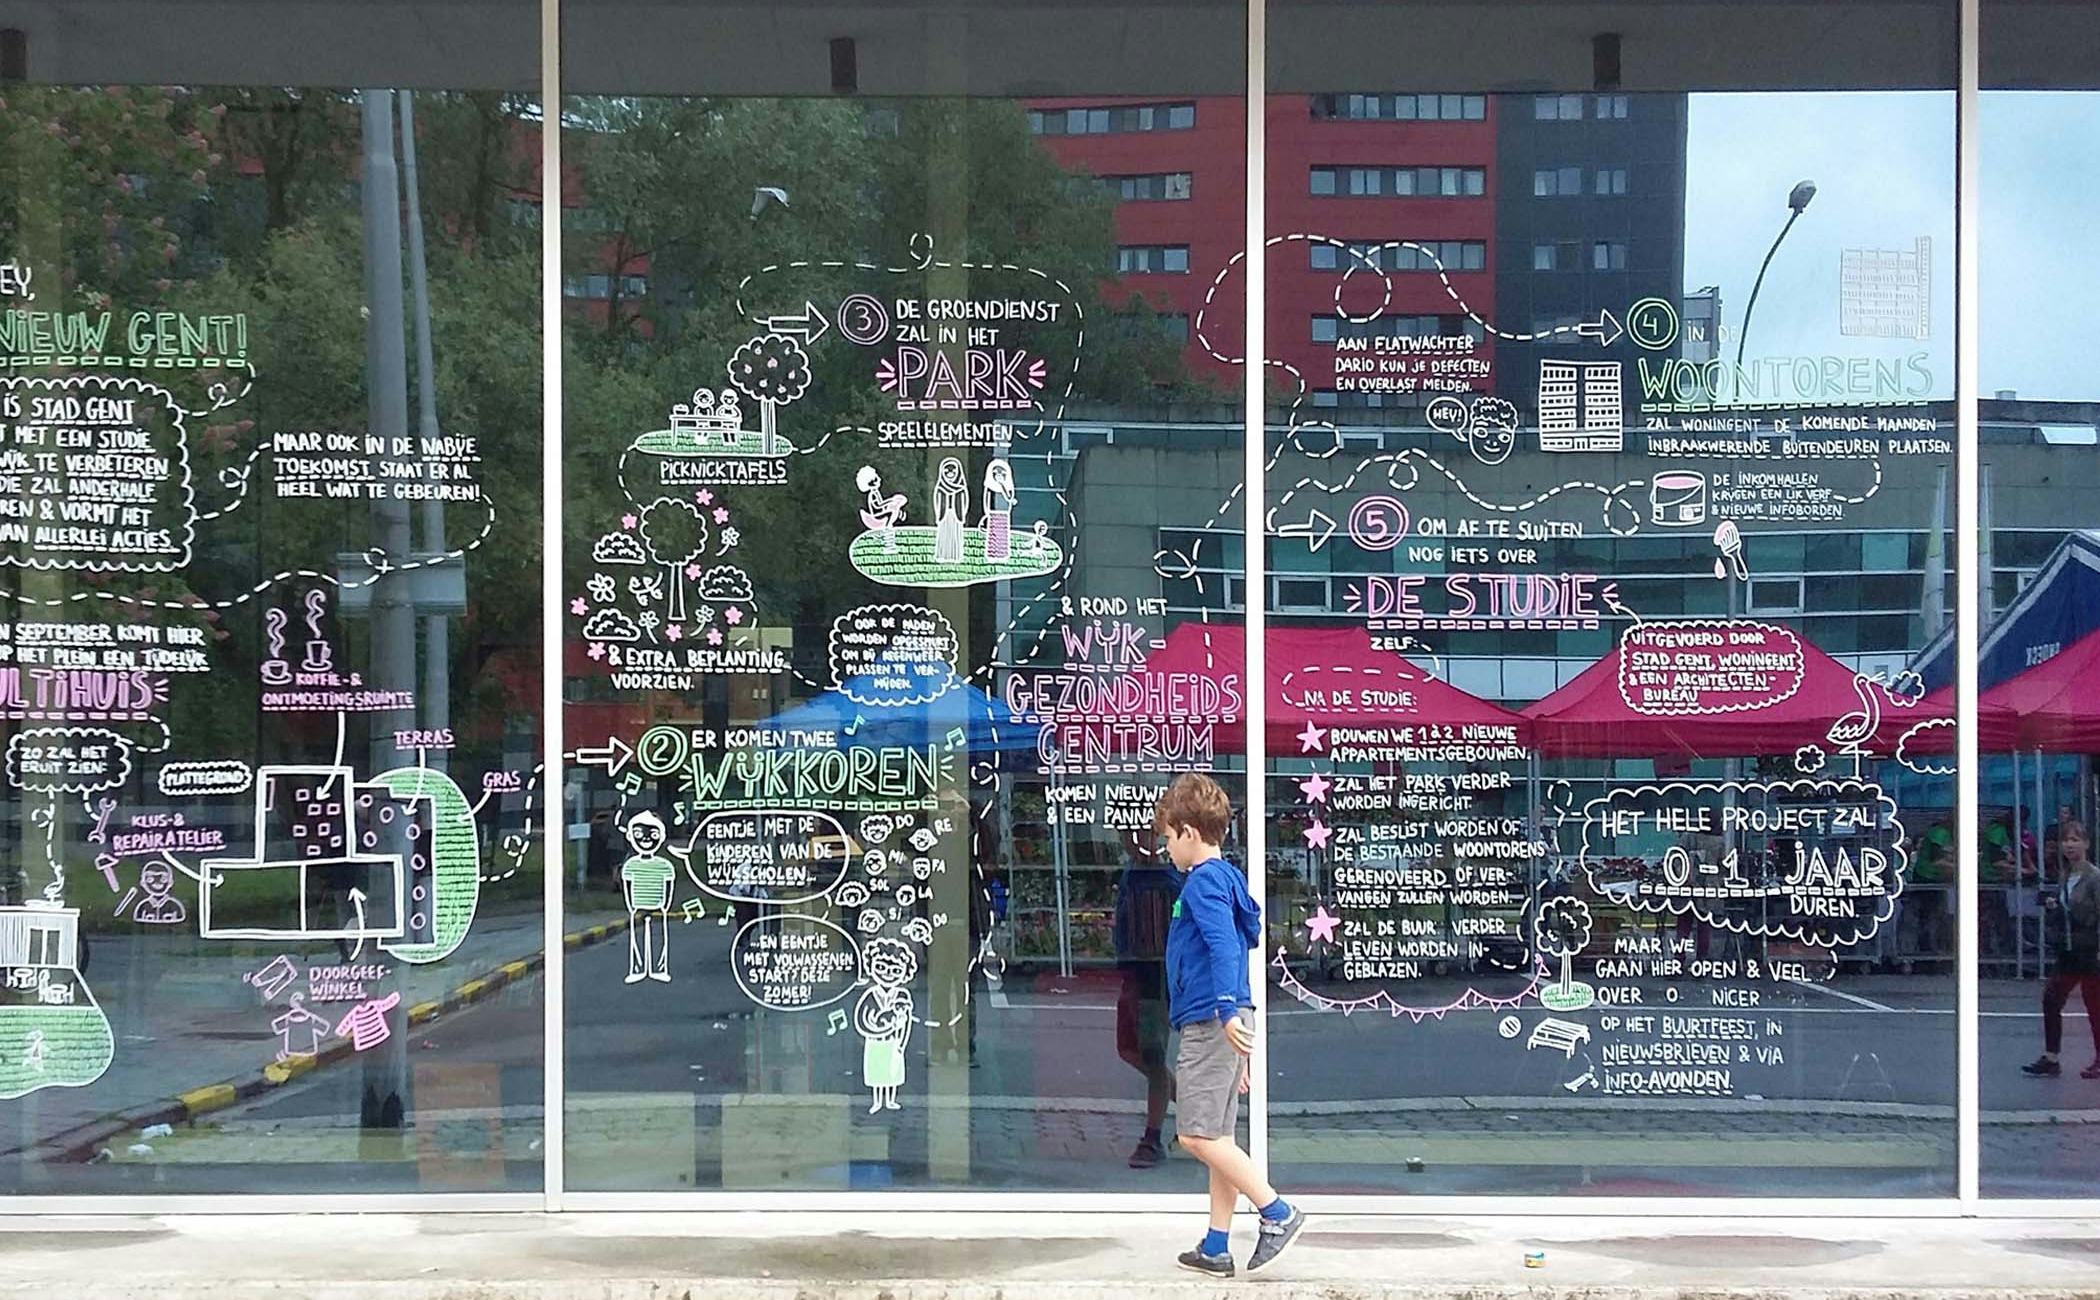 EY,
NIEUW GENT!
IS STAD GENT
T MET EEN STUDIE
WIJK TE VERBETEREN
DIE ZAL ANDERHALF
REN & VORMT HET
VAN ALLERLEI ACTIES.
MAAR OOK IN DE NABIJE
TOEKOMST STAAT ER AL
HEEL WAT TE GEBEUREN!
N SEPTEMBER KOMT HIER
OP HET PLEIN EEN TIJDELIJK
ULTIHUIS
ZO ZAL HET
ERUIT ZIEN:
KOFFIE- &
ONTMOETINGSRUIMTE
TERRAS
GRAS
PLATTEGROND
KLUS- &
REPAIRATELIER
DOORGEEF-
WINKEL
2
ER KOMEN TWEE
WIJKKOREN
EENTJE MET DE
KINDEREN VAN DE
WIJKSCHOLEN...
DO
RE
MI
FA
SOL
LA
SI
DO
...EN EENTJE
MET VOLWASSENEN
START DEZE
ZOMER!
3
DE GROENDIENST
ZAL IN HET
PARK
SPEELELEMENTEN
PICKNICKTAFELS
& EXTRA BEPLANTING
VOORZIEN.
OOK DE PADEN
WORDEN OPGESMUKT
OM BIJ REGENWEER
PLASSEN TE VER-
MIJDEN.
& ROND HET
WIJK-
GEZONDHEIDS
CENTRUM
KOMEN NIEUWE
& EEN PANNA
4
IN DE
WOONTORENS
ZAL WONINGENT DE KOMENDE MAANDEN
INBRAAKWERENDE BUITENDEUREN PLAATSEN.
DE INKOMHALLEN
KRIJGEN EEN LIK VERF
& NIEUWE INFOBORDEN.
AAN FLATWACHTER
DARIO KUN JE DEFECTEN
EN OVERLAST MELDEN.
HEY!
5
OM AF TE SLUITEN
NOG IETS OVER
DE STUDIE
ZELF:
UITGEVOERD DOOR
STAD GENT, WONINGENT
& EEN ARCHITECTEN-
BUREAU
NA DE STUDIE:
BOUWEN WE 1 à 2 NIEUWE
APPARTEMENTSGEBOUWEN.
ZAL HET PARK VERDER
WORDEN INGERICHT.
ZAL BESLIST WORDEN OF
DE BESTAANDE WOONTORENS
GERENOVEERD OF VER-
VANGEN ZULLEN WORDEN.
ZAL DE BUUR VERDER
LEVEN WORDEN IN-
GEBLAZEN.
HET HELE PROJECT ZAL
0-1 JAAR
DUREN.
MAAR WE
GAAN HIER OPEN & VEEL
OVER O NICER
OP HET BUURTFEEST, IN
NIEUWSBRIEVEN & VIA
INFO-AVONDEN.